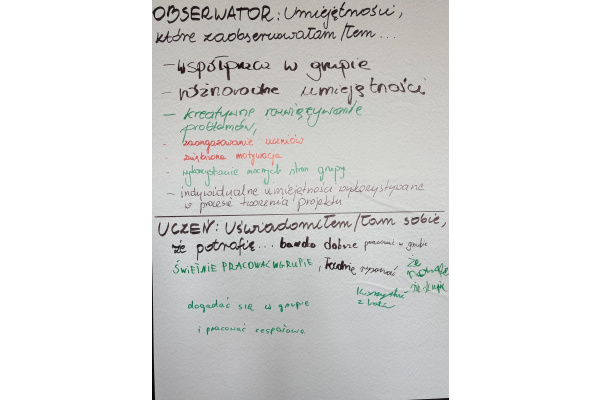 OBSERWATOR: Umiejętności,
które zaobserwowałam/łem...
- współpraca w grupie
- różnorodne umiejętności
- kreatywne rozwiązywanie
problemów,
- zaangażowanie uczniów
- zwiększona motywacja
- wykorzystanie mocnych stron grupy
- indywidualne umiejętności wykorzystywane
w procesie tworzenia projektu
UCZEŃ: Uświadomiłem/łam sobie,
że potrafię... bardzo dobrze pracować w grupie
ŚWIETNIE PRACOWAĆ W GRUPIE, ładnie rysować
że
potrafię
korzystać
z
dogadać się w grupie
i pracować zespołowo